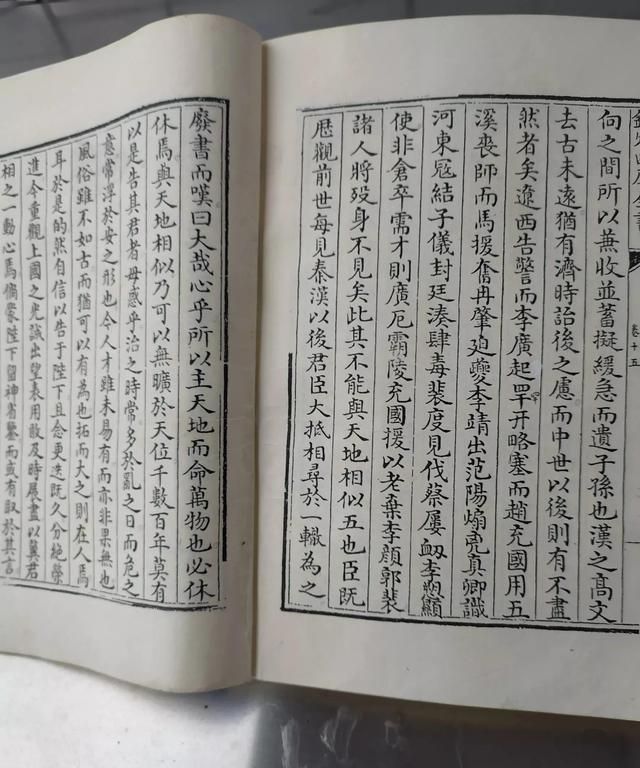 卷十五
向之間所以兼收並蓄擬緩急而遺子孫也漢之高文
去古未遠猶有濟時詒後之慮而中世以後則有不盡
然者矣遼西告警而李廣起罕幵略塞而趙充國用五
溪喪師而馬援奮冉肇廹夔李靖出范陽煽亮真卿識
河東冦結子儀封廷湊肆毒裴度見伐蔡屢衂李愬顯
使非倉卒需才則廣厄霸陵充國援以老棄李顔郭裴
諸人將歿身不見矣此其不能與天地相似五也臣既
歴觀前世每見秦漢以後君臣大抵相尋於一轍為之
廢書而嘆曰大哉心乎所以主天地而命萬物也必休
休焉與天地相似乃可以無曠於天位千數百年莫有
以是告其君者毋惑乎治之時常多於亂之日而危之
意常浮於安之形也今人才雖未易有而亦非果無也
風俗雖不如古而猶可以有為也拓而大之則在人焉
耳於是的然自信以告于陛下且念更迭既久分絶榮
進今重觀上國之光誠出望表用敢及時展盡以冀君
相之一動心焉倘蒙陛下留神省鑒而或有取於其言